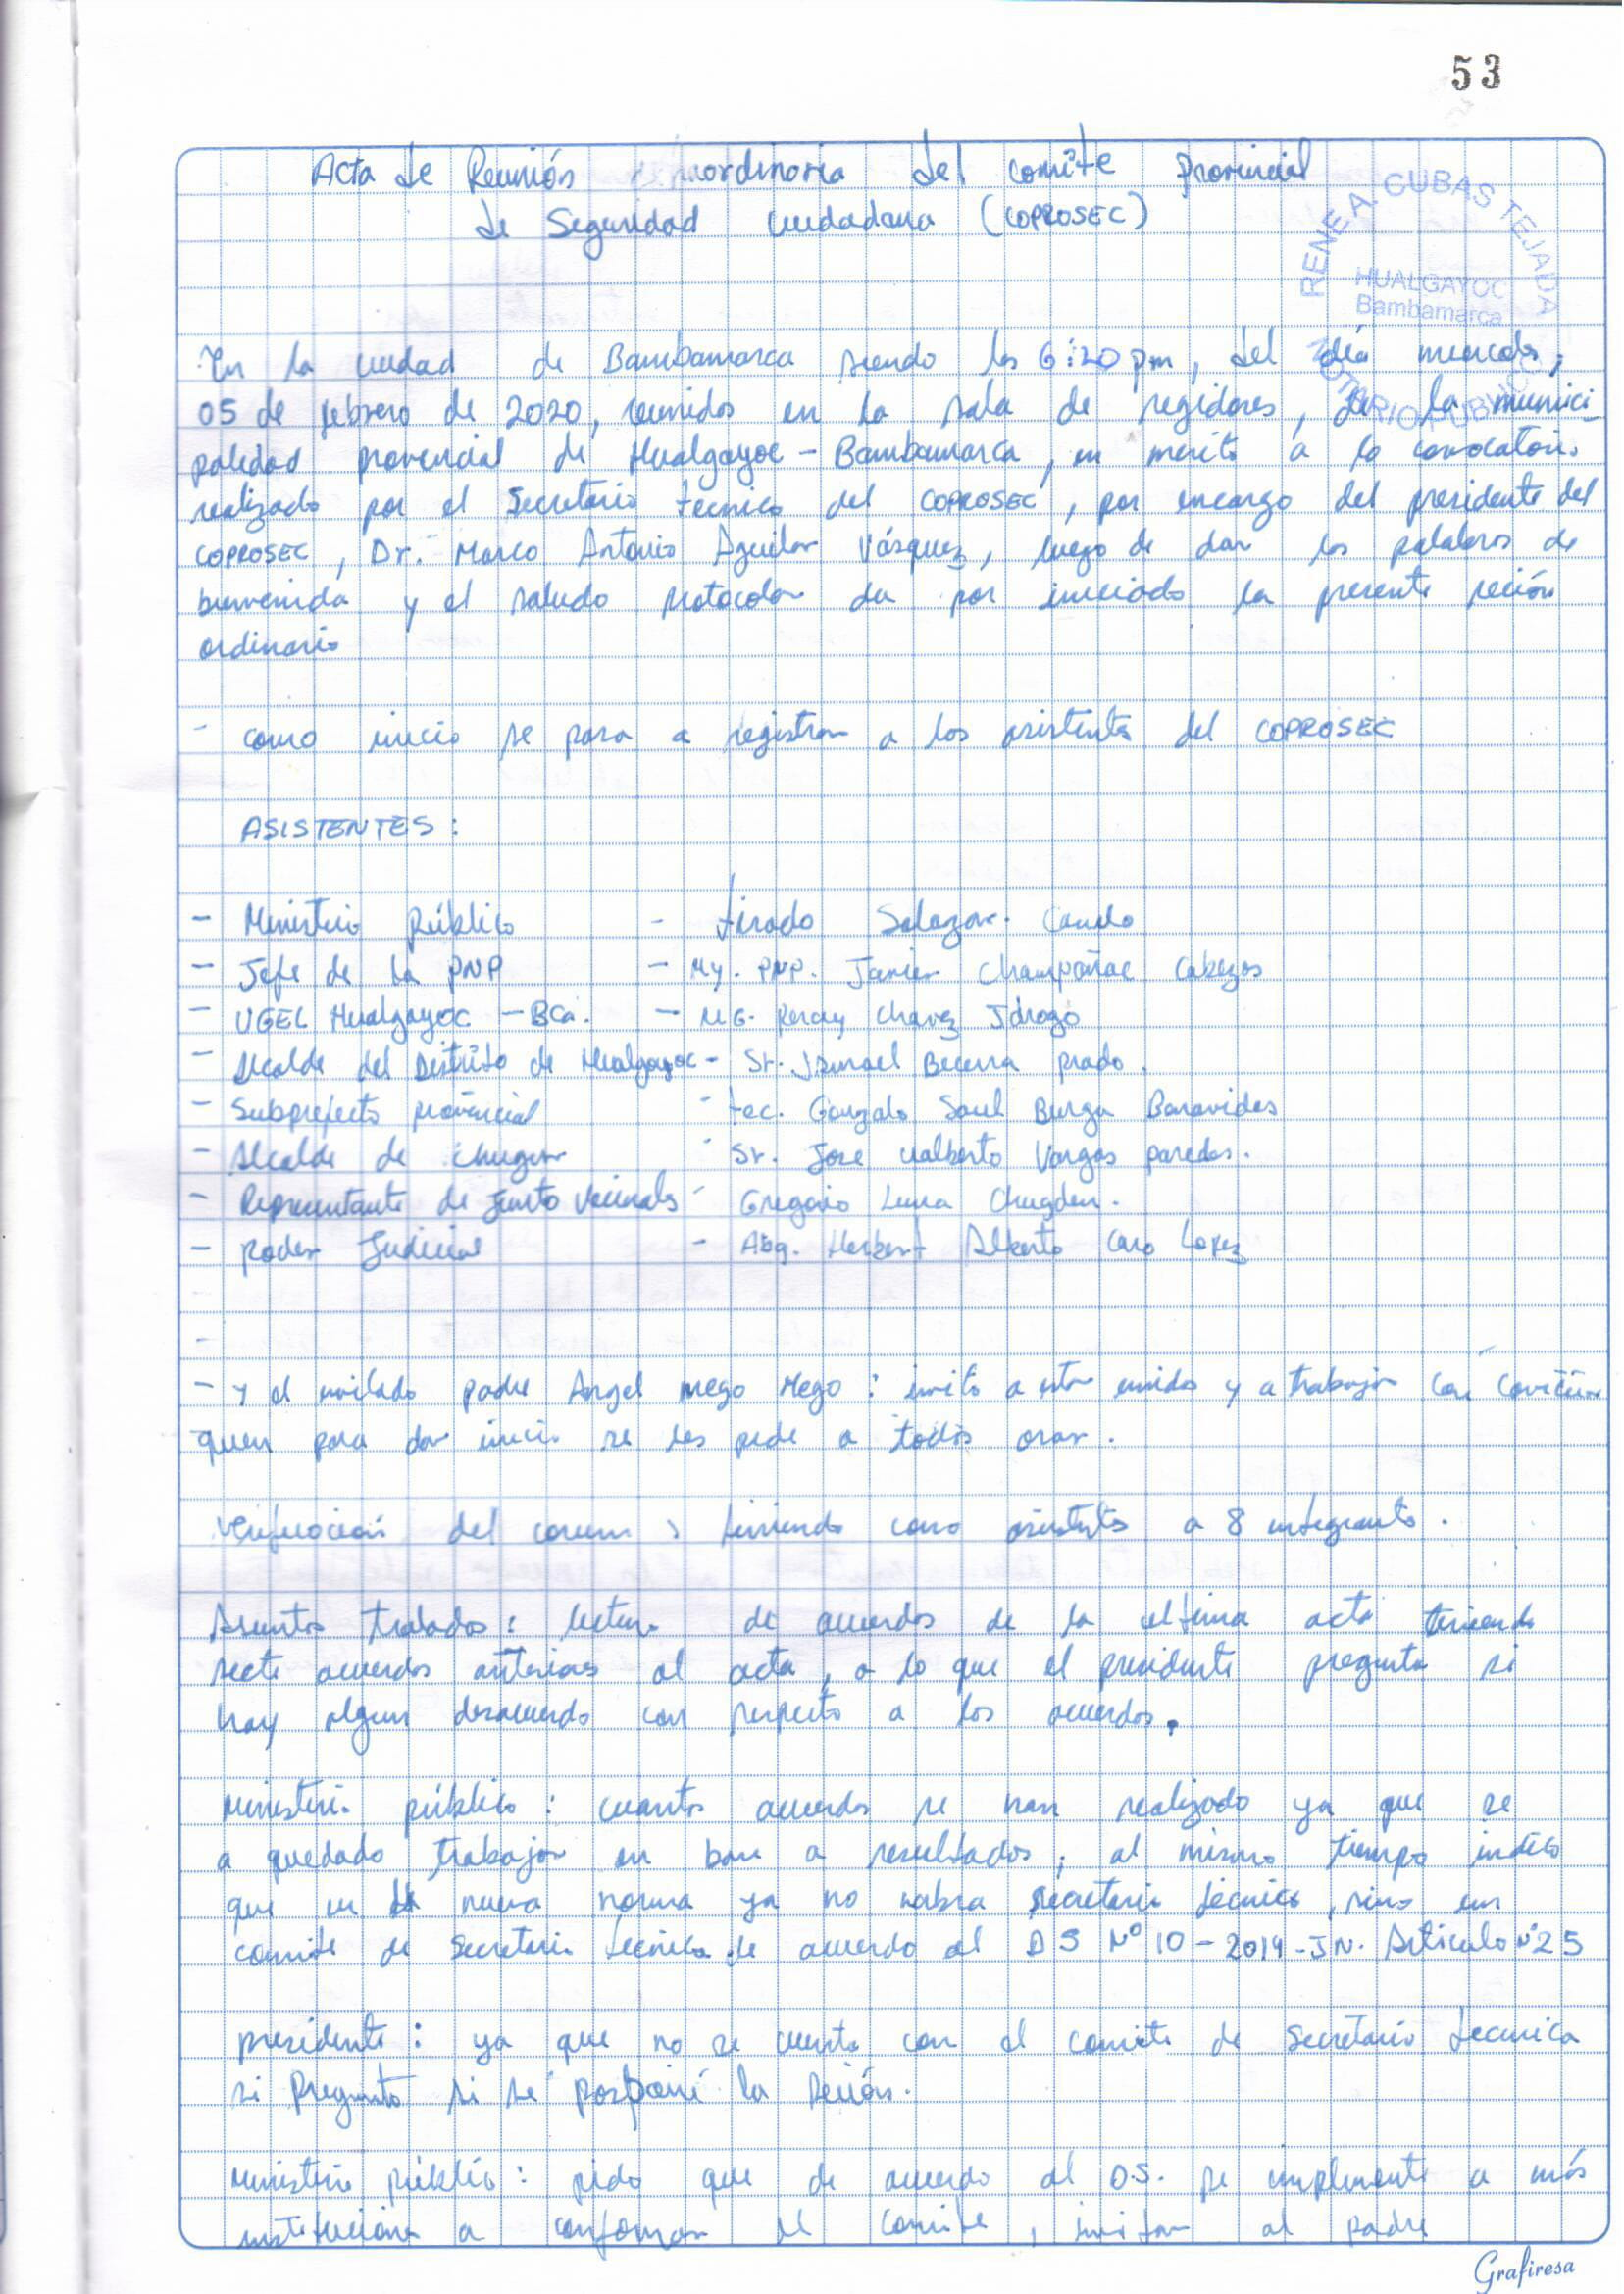 53
Acta de Reunión del comité Provincial
de Seguridad ciudadana (COPROSEC)
RENE A. CUBAS TEJADA
HUALGAYOC
Bambamarca
NOTARIO PUBLICO
En la ciudad de Bambamarca siendo las 6:20 pm, del día miercoles,
05 de febrero de 2020, reunidos en la sala de regidores, de la munici
palidad provincial de Hualgayoc - Bambamarca, en merito a la convocatoria
realizado por el Secretario tecnico del COPROSEC, por encargo del presidente del
COPROSEC, Dr. Marco Antonio Aguilar Vásquez, luego de dar las palabras de
bienvenida y el saludo protocolar da por iniciado la presente seción
ordinario
- como inicio se pasa a registrar a los asistentes del COPROSEC
ASISTENTES:
- Ministerio Público - tirado Salazar
- Jefe de la PNP - My. PNP. Javier Champoñac Cabezas
- UGEL Hualgayoc - BCa. - MG. Chavez Idrogo
- Alcalde del Distrito de Hualgayoc - Sr. Ismael Becerra prado.
- Subprefecto provincial - tec. Gonzalo Saul Burga Benavides
- Alcalde de chugur - Sr. Jose ualberto Vargas paredes.
- Representante de Junta Vecinales - Gregorio Luna Chugden.
- poder Judicial - Abg. Herbert Alberto Caro Lopez
-
- y el invitado padre Angel mego Mego: invito a estar unidos y a trabajar con
quien para dar inicio se les pide a todos orar.
Verificacion del corum, teniendo como asistentes a 8 integrantes.
Asuntos tratados: lectura de acuerdos de la ultima acta teniendo
siete acuerdos anteriores al acta, a lo que el presidente pregunta si
hay algun desacuerdo con respecto a los acuerdos.
ministerio público: cuantos acuerdos se han realizado ya que se
a quedado trabajar en base a resultados; al mismo tiempo indica
que en la nueva norma ya no habra secretario técnico, sino un
comite de Secretaria técnica de acuerdo al DS Nº 10-2019-IN. Articulo Nº25
presidente: ya que no se cuenta con el comite de secretario tecnica
si pregunto si se la seción.
ministerio público: pido que de acuerdo al D.S. se implemente a más
instituciones a conformar el comite, invitar al padre
Grafiresa